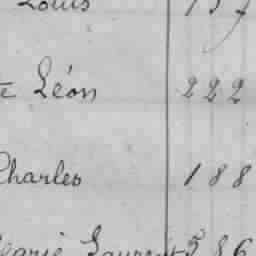 Louis 157
te Léon 222
Charles 188
Marie Laurent 286